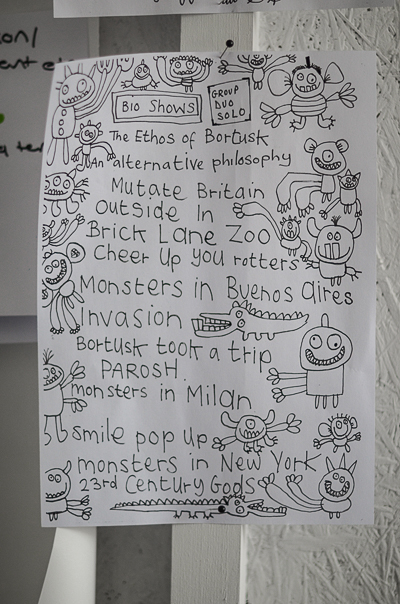 Bio Shows
GROUP
DUO
SOLO
The Ethos of Bortusk
An alternative philosophy
Mutate Britain
outside In
Brick Lane Zoo
Cheer up you rotters
Monsters in Buenos aires
Invasion
Bortusk took a trip
PAROSH.
monsters in Milan
smile pop up
monsters in New York
23rd Century Gods